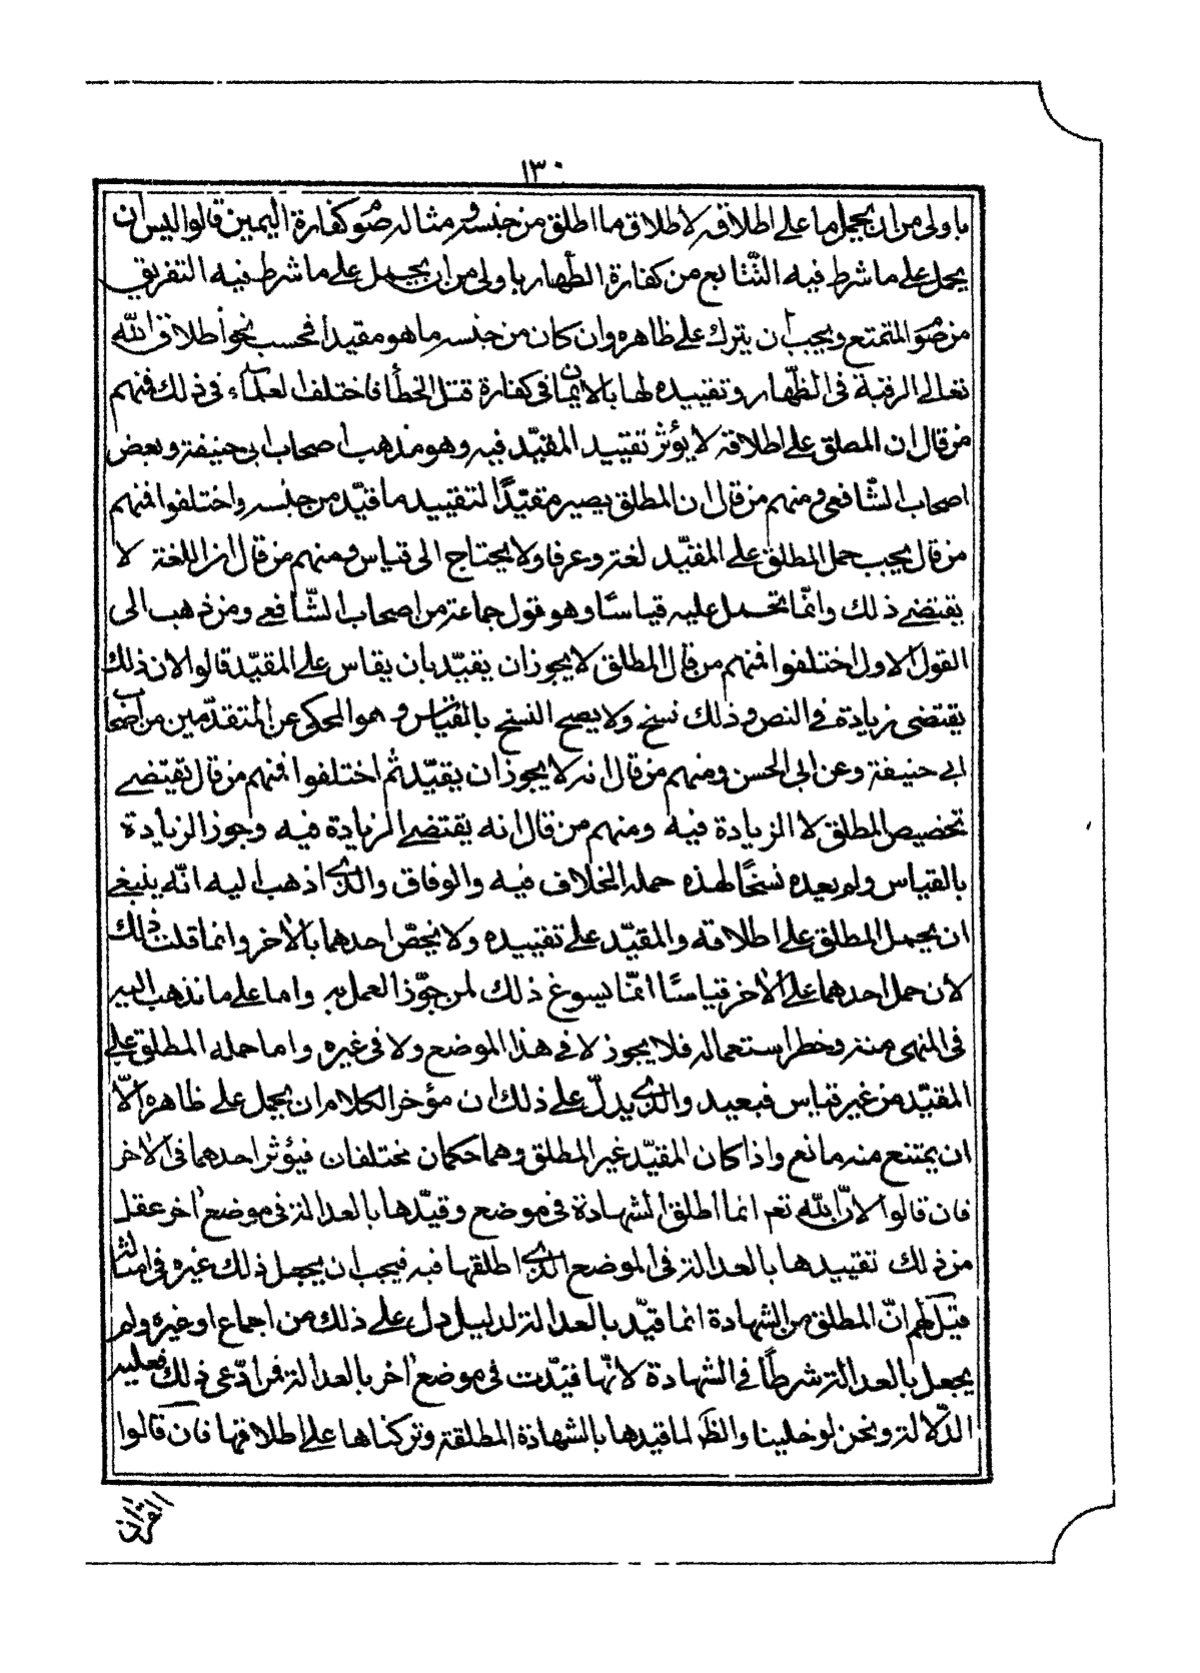 ١٣٠
باولى من ان يحمل ما على اطلاقه لاطلاق ما اطلق من جنسه ومثاله صوم كفارة اليمين قالوا ليس ان
يحمل على ما شرط فيه التّتابع من كفارة الظّهار باولى من ان يحمل على ما شرط فيه التفريق
من صوم المتمتع ويجب ان يترك على ظاهره وان كان من جنسه ما هو مقيداً فحسب نحو اطلاق اللّه
تعالى الرقبة فى الظّهار وتقييده لها بالايمان فى كفارة قتل الخطأ فاختلف العلماء فى ذلك فمنهم
من قال ان المطلق على اطلاقه لا يؤثر تقييد المقيّد فيه وهو مذهب اصحاب ابى حنيفة وبعض
اصحاب الشّافعى ومنهم من قال ان المطلق يصير مقيّداً لتقييد ما قيّد من جنسه واختلفوا فمنهم
من قال يجب حمل المطلق على المقيّد لغة وعرفا ولا يحتاج الى قياس ومنهم من قال ان اللغة لا
يقتضى ذلك وانّما يحمل عليه قياسًا وهو قول جماعة من اصحاب الشّافعى ومن ذهب الى
القول الاول اختلفوا فمنهم من قال المطلق لا يجوز ان يقيّد بان يقاس على المقيّد قالوا لان ذلك
يقتضى زيادة فى النص وذلك نسخ ولا يصح النسخ بالقياس وهو المحكى عن المتقدّمين من اصحاب
ابى حنيفة وعن ابى الحسن ومنهم من قال انه لا يجوز ان يقيّد ثم اختلفوا فمنهم من قال تقتضى
تخصيص المطلق لا الزيادة فيه ومنهم من قال انه يقتضى الزيادة فيه وجوز الزيادة
بالقياس ولم يعده نسخًا لهذه حملة الخلاف فيه والوفاق والذى اذهب اليه انّه ينبغى
ان يحمل المطلق على اطلاقه والمقيّد على تقييده ولا نخصّ احدهما بالآخر وانما قلت ذلك
لان حمل احدهما على الآخر قياسًا انّما يسوغ ذلك لمن جوّز العمل به واما على ما نذهب اليه
فى المنهى منه وخطر استعماله فلا يجوز لا فى هذا الموضع ولا فى غيره واما حمله المطلق على
المقيّد من غير قياس فبعيد والذى يدلّ على ذلك ان مؤخر الكلام ان يحمل على ظاهره الّا
ان يمتنع منه مانع واذا كان المقيّد غير المطلق وهما حكمان مختلفان فيؤثر احدهما فى الآخر
فان قالوا لانّ اللّه تعم انما اطلق الشهادة فى موضع وقيّدها بالعدالة فى موضع آخر عقل
من ذلك تقييدها بالعدالة فى الموضع الذى اطلقها فيه فيجب ان يجعل ذلك غيره فى امثاله
قيل لهم انّ المطلق من الشهادة انما قيّد بالعدالة لدليل دل على ذلك من اجماع او غيره ولم
يجعل بالعدالة شرطًا فى الشهادة لانّها قيّدت فى موضع آخر بالعدالة فمن ادّعى ذلك فعليه
الدّلالة ونحن لو خلينا والظّ لما قيدها بالشهادة المطلقة وتركناها على اطلاقها فان قالوا
القرآن